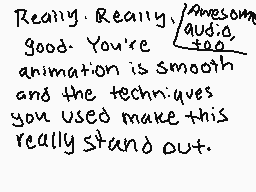 Really. Really,
good. You're
animation is smooth
and the techniques
you used make this
really stand out.
Awesome
audio,
too